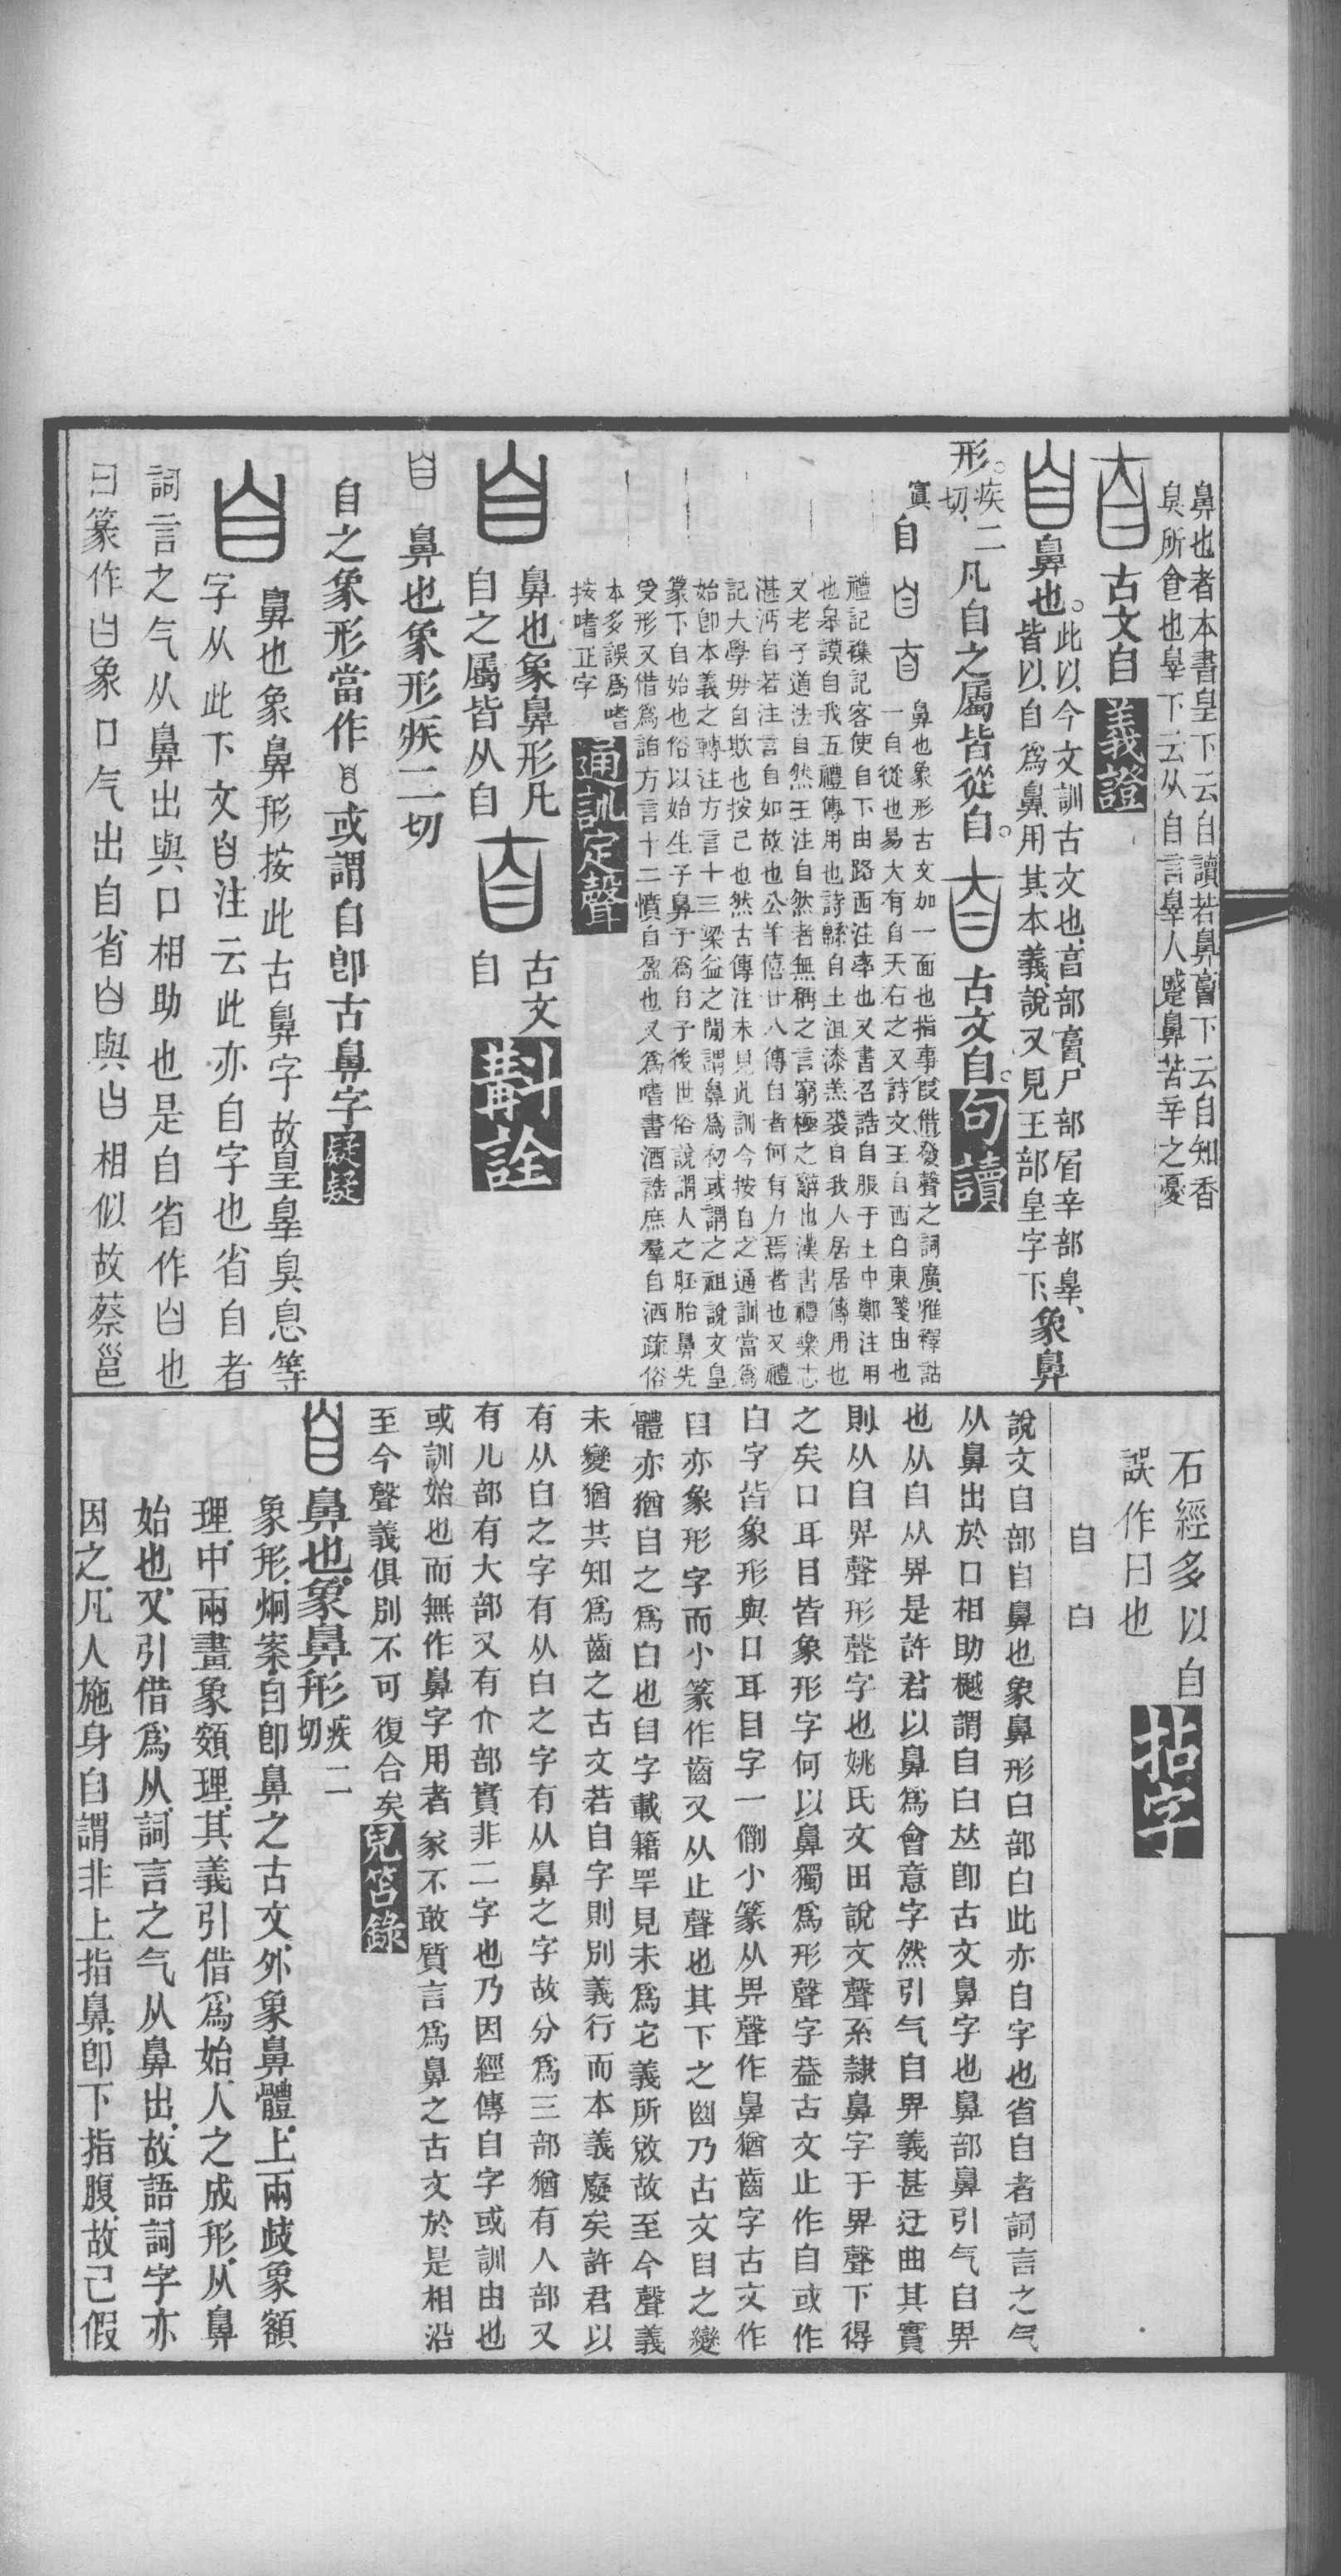 鼻也者本書皇下云自讀若鼻𦤓下云自知香
臭所食也辠下云从自言辠人蹙鼻苦辛之憂
古文自
義證
鼻也。此以今文訓古文也、𣆪部𦤓、尸部眉、辛部辠、
皆以自爲鼻、用其本義、說又見王部皇字下、象鼻
形。疾二切、凡自之屬皆從自。
古文自。句讀
自
鼻也象形古文加一面也指事叚借發聲之詞廣雅釋詁
一自從也易大有自天右之又詩文王自西自東箋由也
禮記襍記客使自下由路西注率也又書召誥自服于土中鄭注用
也皋謨自我五禮傳用也詩緜自土沮漆羔裘自我人居居傳用也
又老子道法自然王注自然者無稱之言窮極之辭也漢書禮樂志
湛沔自若注言自如故也公羊僖廿八傳自者何有力焉者也又禮
記大學毋自欺也按己也然古傳注未見此訓今按自之通訓當爲
始卽本義之轉注方言十三梁益之閒謂鼻爲初或謂之祖說文皇
篆下自始也俗以始生子鼻子爲自子後世俗說謂人之胚胎鼻先
受形又借爲詯方言十二憤自盈也又爲嗜書酒誥庶羣自酒疏俗
本多誤爲嗜
按嗜正字
通訓定聲
鼻也象鼻形凡
自之屬皆从自
古文
自
斠詮
鼻也象形疾二切
自之象形當作 或謂自卽古鼻字
疑疑
鼻也象鼻形按此古鼻字故皇辠臭息等
字从此下文白注云此亦自字也省自者
詞言之气从鼻出與口相助也是自省作白也
曰篆作 象口气出自省 與 相似故蔡邕
石經多以自
誤作日也
拈字
自 白
說文自部自鼻也象鼻形白部白此亦自字也省自者詞言之气
从鼻出於口相助樾謂自白竝卽古文鼻字也鼻部鼻引气自畀
也从自从畀是許君以鼻爲會意字然引气自畀義甚迂曲其實
則从自畀聲形聲字也姚氏文田說文聲系隸鼻字于畀聲下得
之矣口耳目皆象形字何以鼻獨爲形聲字葢古文止作自或作
白字皆象形與口耳目字一例小篆从畀聲作鼻猶齒字古文作
𦥒亦象形字而小篆作齒又从止聲也其下之 乃古文𦥒之變
體亦猶自之爲白也𦥒字載籍罕見未爲它義所敓故至今聲義
未變猶共知爲齒之古文若自字則別義行而本義廢矣許君以
有从白之字有从自之字有从鼻之字故分爲三部猶有人部又
有儿部有大部又有亣部實非二字也乃因經傳自字或訓由也
或訓始也而無作鼻字用者家不敢質言爲鼻之古文於是相沿
至今聲義俱別不可復合矣
兒笘錄
鼻也、象鼻形疾二切
象形、炯案、自卽鼻之古文、外象鼻體、上兩歧象額
理、中兩畫象頞理、其義引借爲始、人之成形、从鼻
始也、又引借爲从、詞言之气从鼻出、故語詞字亦
因之、凡人施身自謂非上指鼻、卽下指腹、故己假